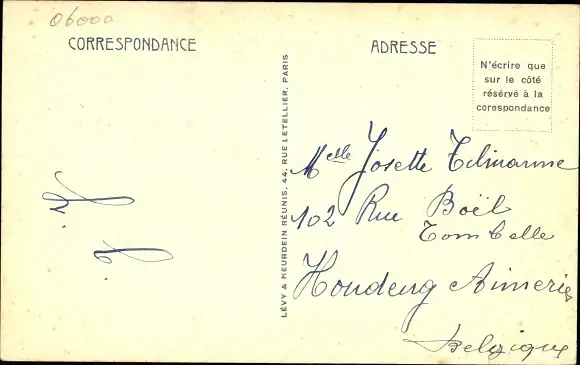 06000
CORRESPONDANCE
ADRESSE
N'écrire que
sur le côté
réservé à la
corespondance
LÉVY & NEURDEIN RÉUNIS, 44, RUE LETELLIER, PARIS
Melle Josette
102 Rue Boël
Tombelle
Houdeng Aimeries
Belgique